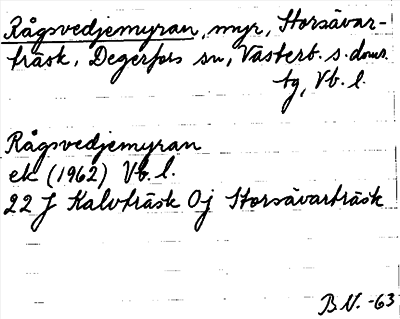 Rågsvedjemyran, myr, Storsävar-
träsk, Degerfors sn, Västerb. s. doms.
tg, Vb. l.
Rågsvedjemyran
ek (1962) Vb. l.
22 J Kalvträsk 0j Storsävarträsk
B.N. -63